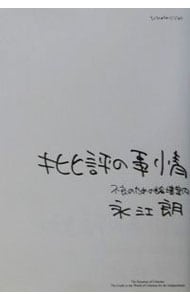 批評の事情
不良のための論壇案内
永江朗
The Situation of Criticism
The Guide to the World of Criticism for the Independents